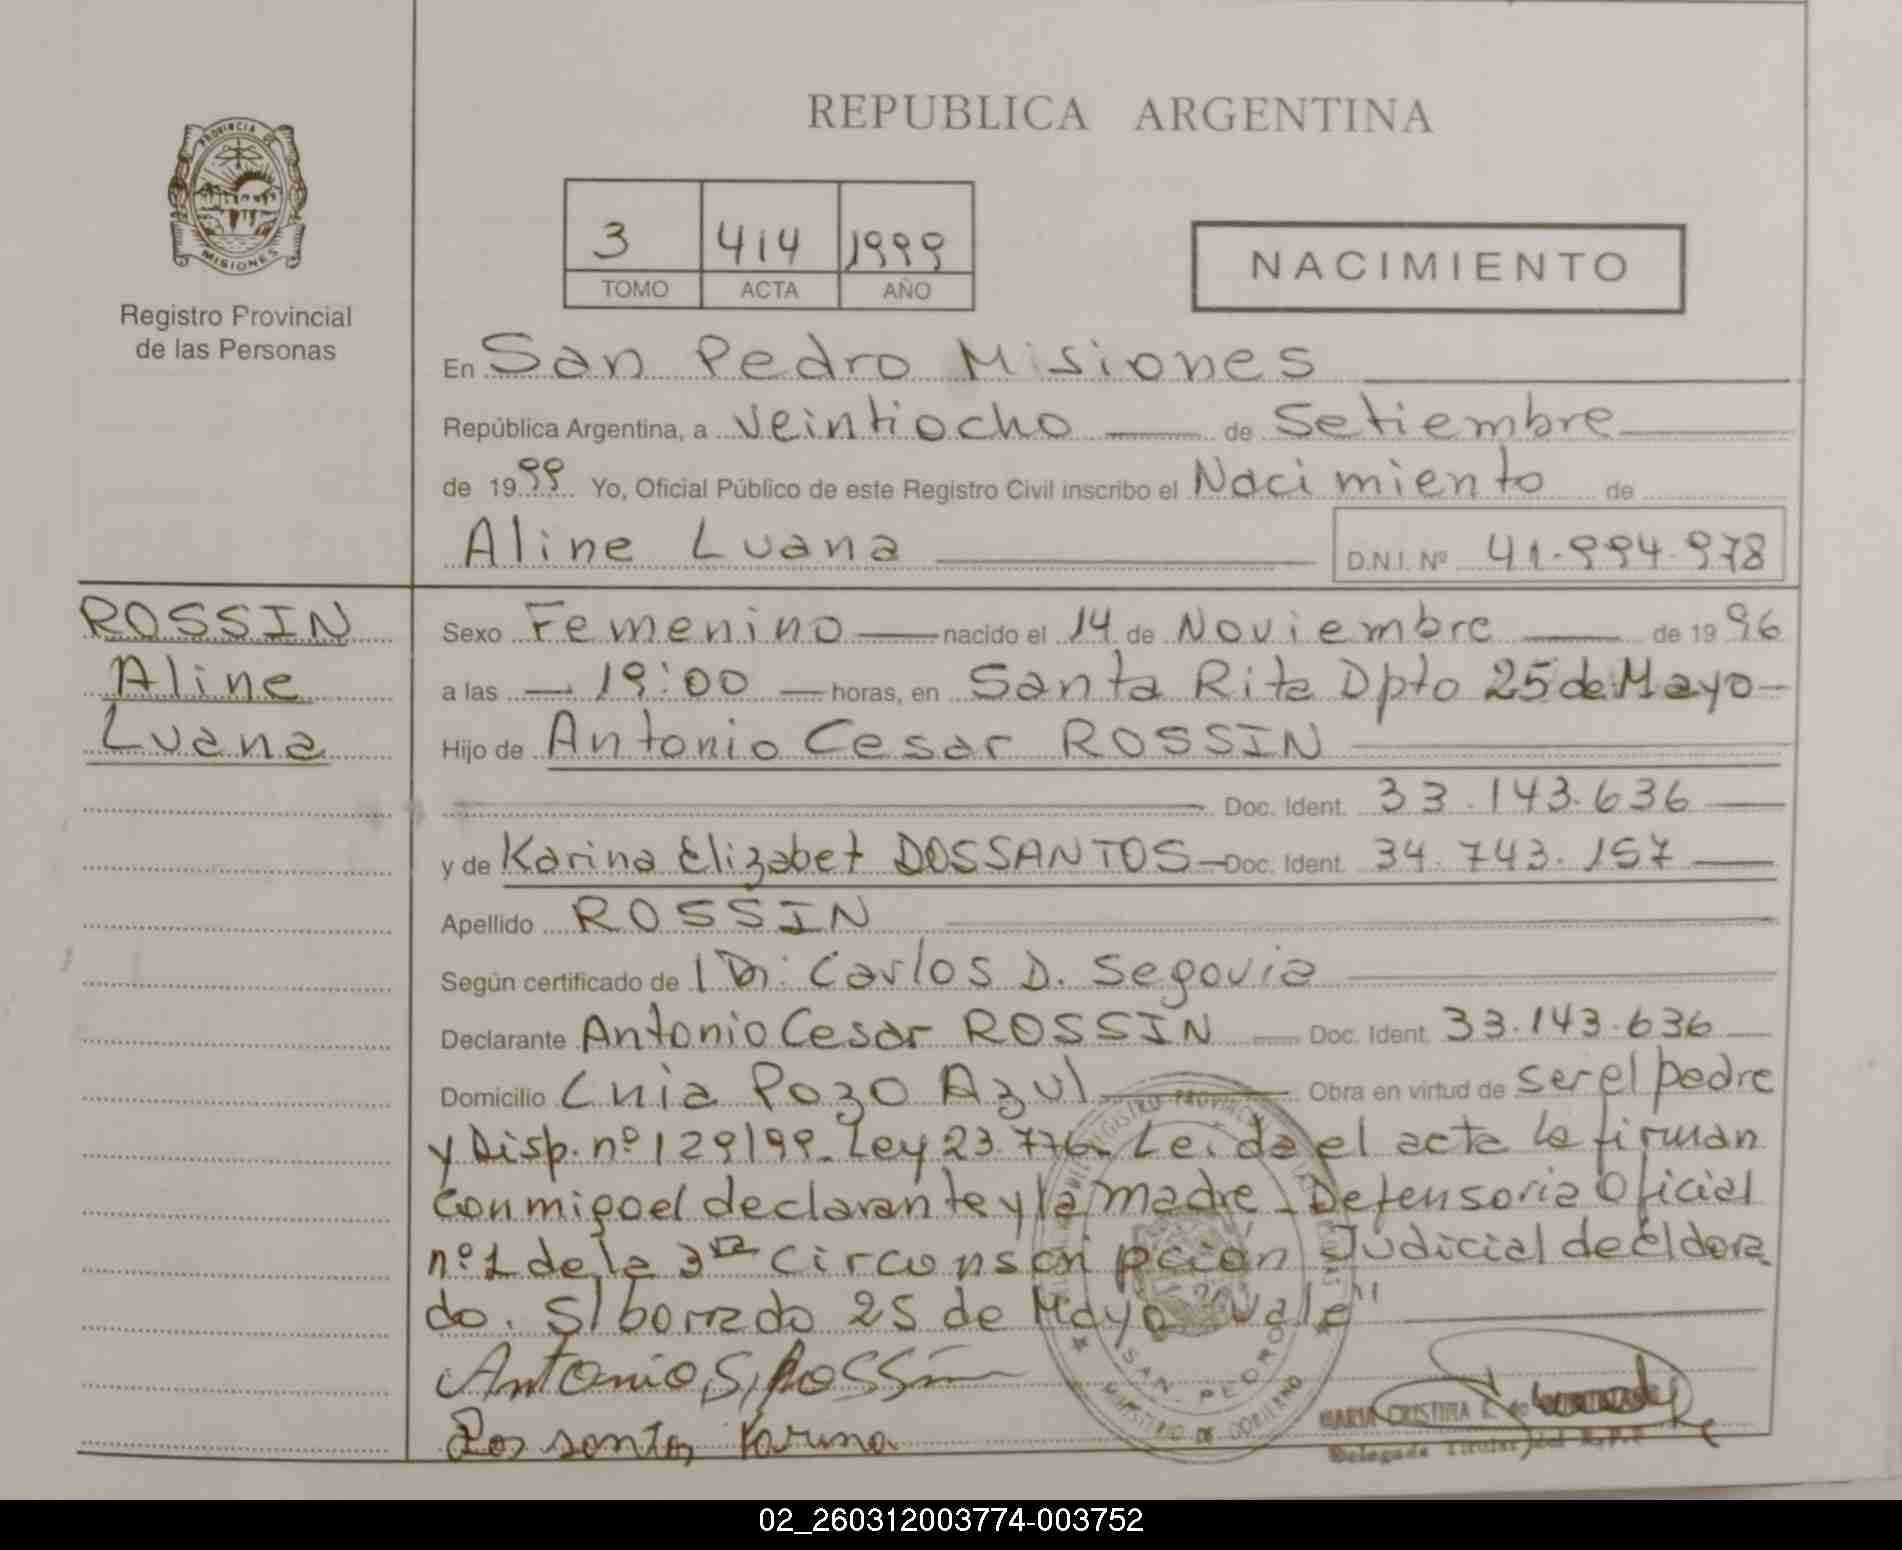 REPUBLICA ARGENTINA
PROVINCIA DE
MISIONES
Registro Provincial
de las Personas
3 414 1999
TOMO ACTA AÑO
NACIMIENTO
En San Pedro Misiones
República Argentina, a veintiocho de Setiembre
de 1999 Yo, Oficial Público de este Registro Civil inscribo el Nacimiento de
Aline Luana D.N.I. Nº 41.994.978
ROSSIN
Aline
Luana
Sexo Femenino nacido el 14 de Noviembre de 1996
a las 19:00 horas, en Santa Rita Dpto 25 de Mayo
Hijo de Antonio Cesar ROSSIN
Doc. Ident. 33.143.636
y de Karina Elizabet DOSSANTOS Doc. Ident. 34.743.157
Apellido ROSSIN
Según certificado de Carlos D. Segovia
Declarante Antonio Cesar ROSSIN Doc. Ident. 33.143.636
Domicilio Lnia Pozo Azul Obra en virtud de ser el padre
y Disp. nº 129/99. Ley 23.776. Leida el acta la firman
conmigo el declarante y la madre. Defensoria Oficial
nº 1 de la 3ra Circunscripción Judicial de Eldora
do. S/ borrado 25 de Mayo "Vale"
Antonio S, Rossin
Dos santos Karina
REGISTRO PROVINCIAL
SAN PEDRO
MINISTERIO DE GOBIERNO
MARIA CRISTINA
Delegada Titular del R.P.P
02_260312003774-003752